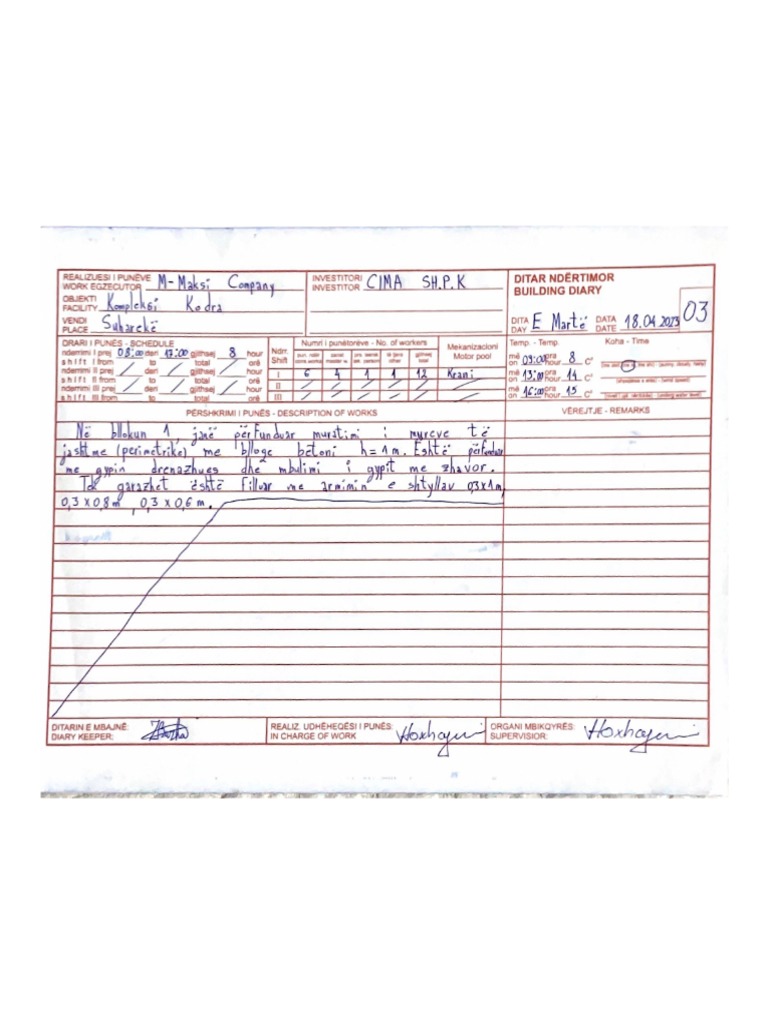 REALIZUESI I PUNËVE M-Maksi Company
WORK EGZECUTOR
OBJEKTI Kompleksi Kodra
FACILITY
VENDI Suharekë
PLACE
INVESTITORI CIMA SH.P.K
INVESTITOR
DITAR NDËRTIMOR
BUILDING DIARY
DITA E Martë DATA 18.04 2023 03
DAY DATE
ORARI I PUNËS - SCHEDULE
ndërrimi I prej 08:00 deri 17:00 gjithsej 8 hour
shift I from to total orë
ndërrimi II prej deri gjithsej hour
shift II from to total orë
ndërrimi III prej deri gjithsej hour
shift III from to total orë
Ndrr. Shift
Numri i punëtorëve - No. of workers
Mekanizacioni
Motor pool
I 6 4 1 1 12 Krani
II
III
Temp. - Temp. Koha - Time
më 09:00 ora 8 C°
on hour
më 13:00 ora 14 C°
on hour
më 16:00 ora 15 C°
on hour
PËRSHKRIMI I PUNËS - DESCRIPTION OF WORKS
VËREJTJE - REMARKS
Në bllokun 1, janë përfunduar muratimi i mureve të
jashtme (perimetrike) me blloge betoni h=1m. Është përfunduar
me gypin drenazhues dhe mbulimi i gypit me zhavor.
Tek garazhet është filluar me armimin e shtyllav 0,3x1m,
0,3x0,8m, 0,3x0,6m.
DITARIN E MBAJNË:
DIARY KEEPER:
REALIZ. UDHËHEQËSI I PUNËS:
IN CHARGE OF WORK
ORGANI MBIKQYRËS:
SUPERVISIOR: